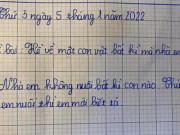 Thứ 3 ngày 5 tháng 1 năm 2022
bài: Kể về một con vật bất kì mà nhà em
Nhà em không nuôi bất kì con nào. Thứ
em nuôi thì em mới biết tả